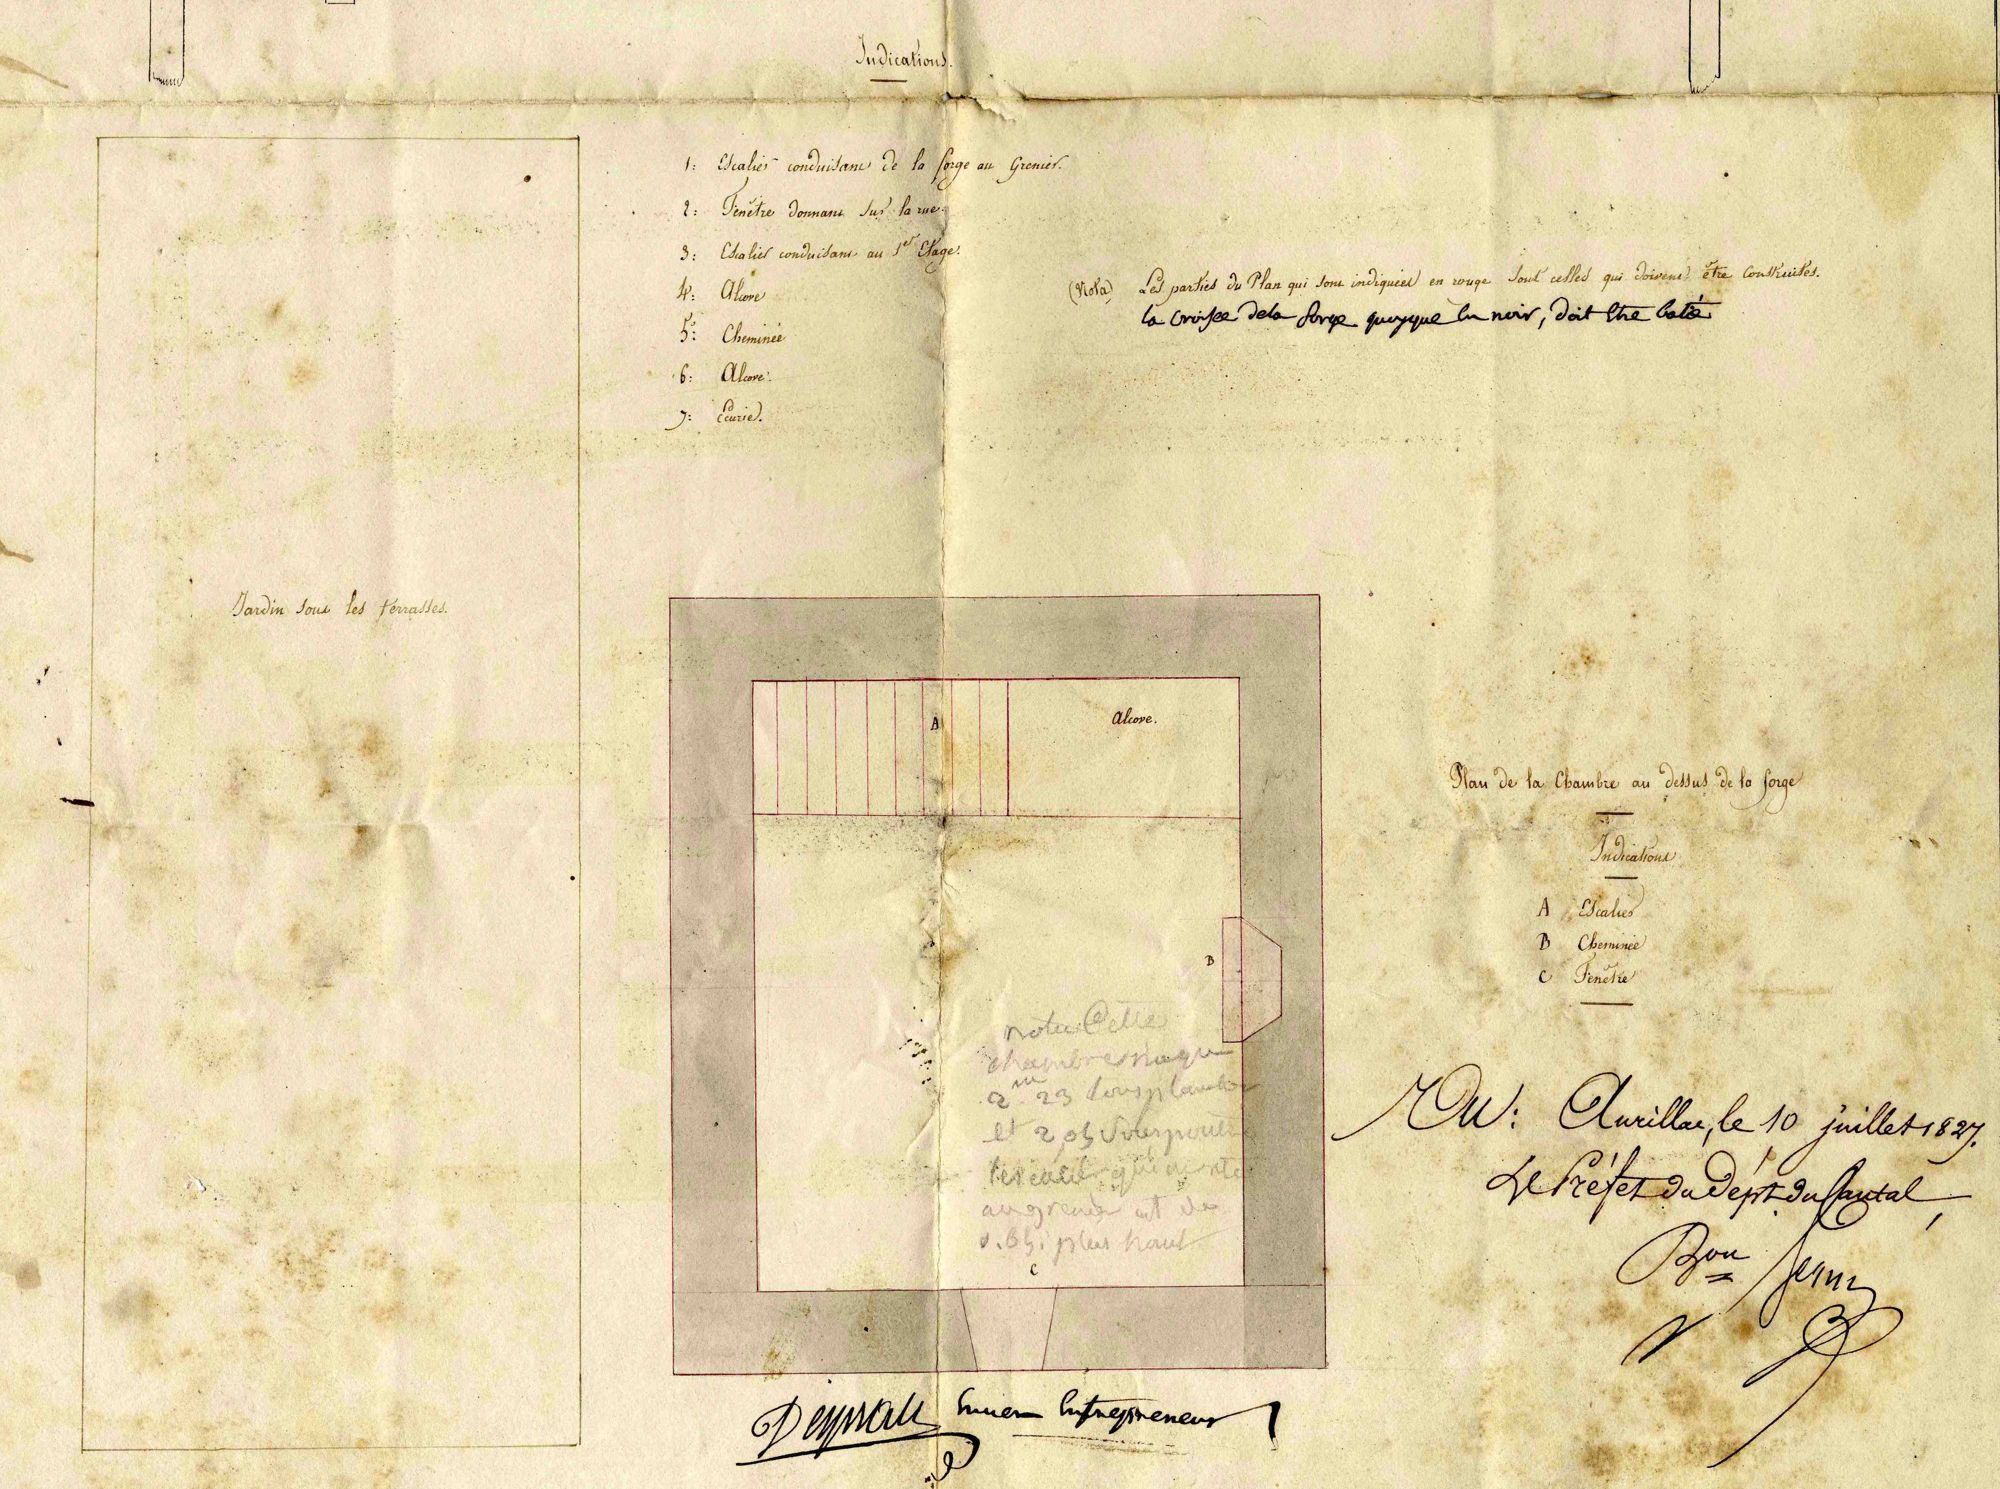 Indications.
1: Escalier conduisant de la forge au Grenier.
2: Fenêtre donnant sur la rue.
3: Escalier conduisant au 1er Etage.
4: Alcove
5: Cheminée
6: Alcove.
7: Ecurie.
(Nota) Les parties du Plan qui sont indiquées en rouge sont celles qui doivent être construites.
la croisée dela forge quoyque en noir, doit être
Jardin sous les terrasses.
A
Alcove.
Plan de la Chambre au dessus de la forge
Indications
A Escalier
B Cheminée
C Fenêtre
B
nota Cette
chambre
2m 23 sous
et 2
au grenier est de
plus haut
C
Vu: Aurillac, le 10 juillet 1827.
Le Préfet du Dépt du Cantal,
Bon
Entrepreneur